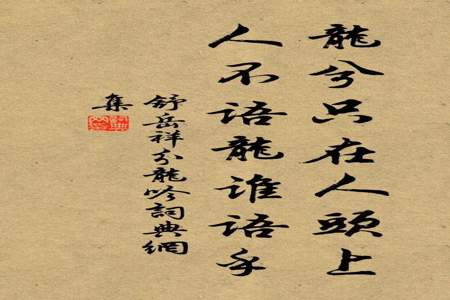 龍兮只在人頭上
人不語龍誰語乎
舒岳祥分龍吟詞典網
集